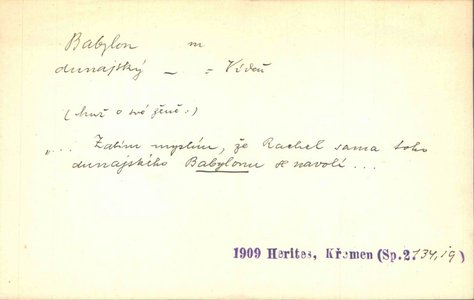 Babylon m
dunajský — = Vídeň
(Muž o své ženě:)
„... Zatím myslím, že Rachel sama toho
dunajského Babylonu se navolí ...
1909 Herites, Křemen (Sp.2.134,19)